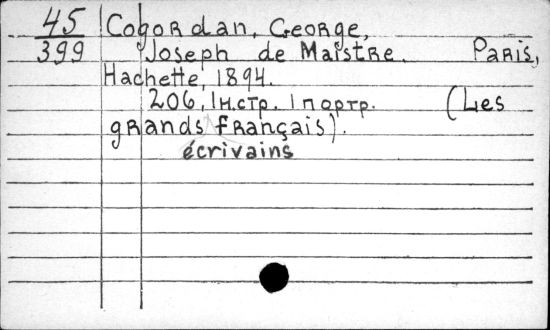 45 Cogordan, George,
399 Joseph de Maistre. Paris,
Hachette, 1894.
206, 1 н.стр. 1 портр. (Les
grands français).
écrivains